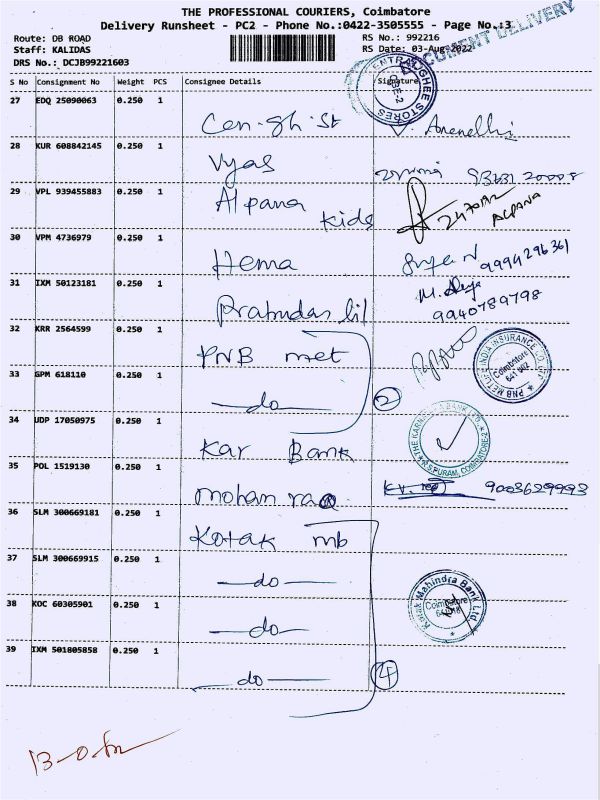 THE PROFESSIONAL COURIERS, Coimbatore
Delivery Runsheet - PC2 - Phone No.:0422-3505555 - Page No.:3
Route: DB ROAD
Staff: KALIDAS
DRS No.: DCJB99221603
RS No.: 992216
RS Date: 03-Aug-2022
DOCUMENT DELIVERY
S No Consignment No Weight PCS Consignee Details Signature
CENTRAL GHEE STORES CBE-2
27 EDQ 25090063 0.250 1 Cen. Gh. St
28 KUR 608842145 0.250 1 Vyas
29 VPL 939455883 0.250 1 Alpana Kids ALPANA
30 VPM 4736979 0.250 1 Hema 9994296361
31 IXM 50123181 0.250 1 Prabudas lil 9940789798
32 KRR 2564599 0.250 1 PNB met
PNB METLIFE INDIA INSURANCE CO. LTD. Coimbatore 641 002
33 GPM 618110 0.250 1 do 2
34 UDP 17050975 0.250 1 Kar Bank
THE KARNATAKA BANK LTD. R.S.PURAM, COIMBATORE-2
35 POL 1519130 0.250 1 Mohan rao 9003629993
36 SLM 300669181 0.250 1 Kotak mb
37 SLM 300669915 0.250 1 do
Kotak Mahindra Bank Ltd. Coimbatore
38 KOC 60305901 0.250 1 do
39 IXM 501805858 0.250 1 do 4